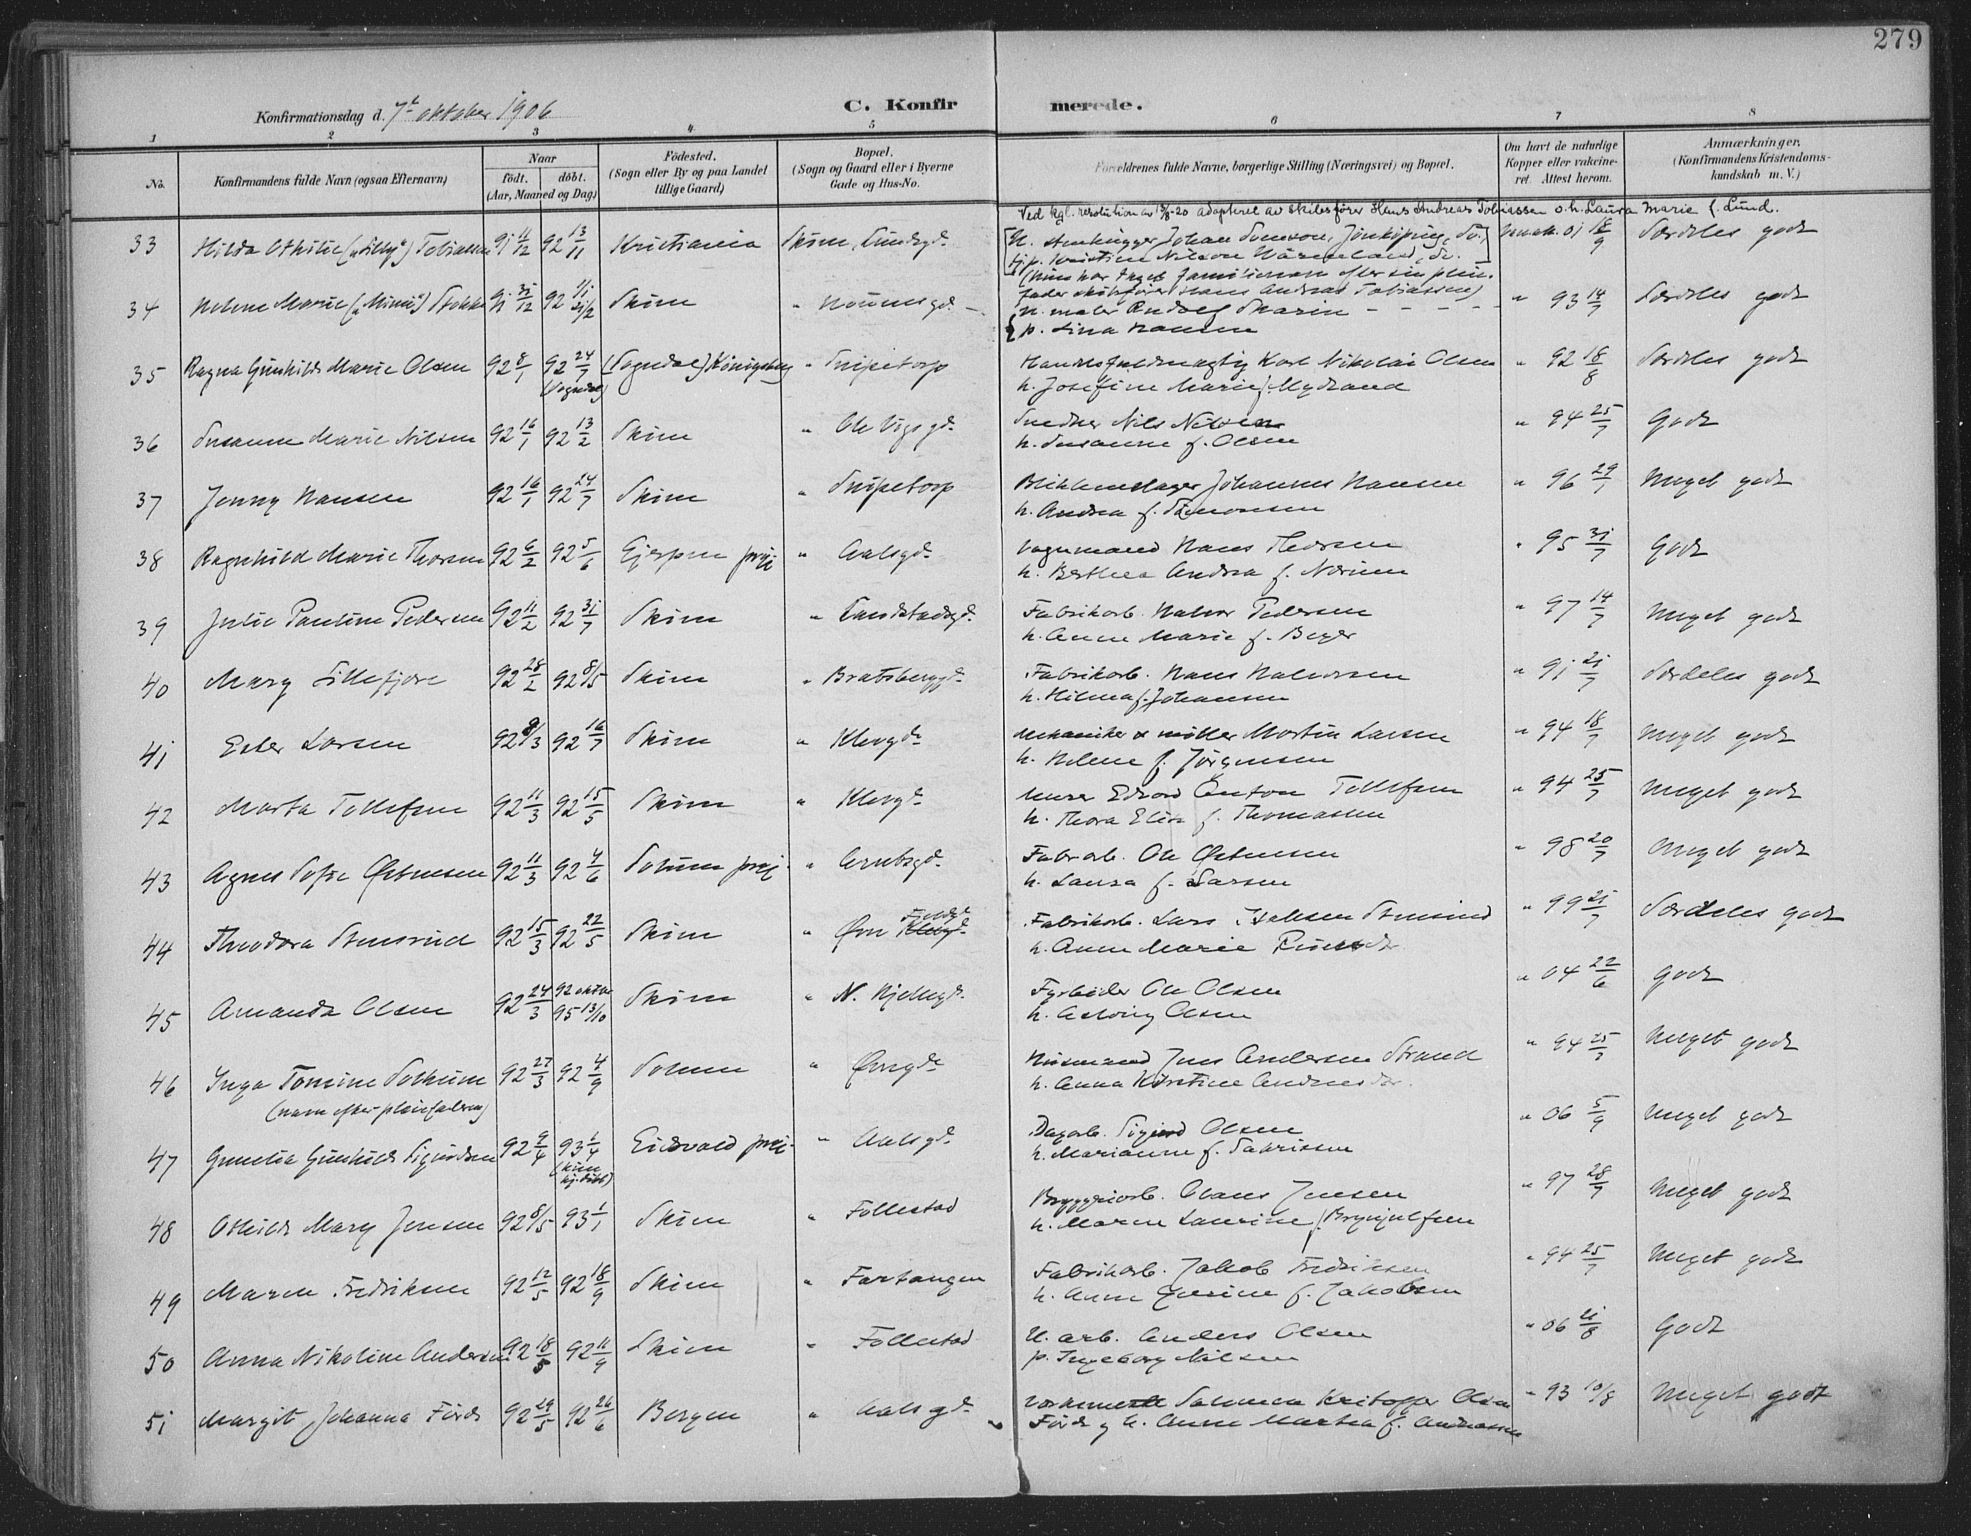 279
Konfirmationsdag d. 7de oktober 1906
C. Konfirmerede.
1 2 3 4 5 6 7 8
No. Konfirmandens fulde Navn (ogsaa Efternavn)
Naar født. døbt. (Aar, Maaned og Dag)
Fødested. (Sogn eller By og paa Landet tillige Gaard)
Bopæl. (Sogn og Gaard eller i Byerne Gade og Hus-No.
Forældrenes fulde Navne, borgerlige Stilling (Næringsvei) og Bopæl.
Om havt de naturlige Kopper eller vakcineret. Attest herom.
Anmærkninger. (Konfirmandens Kristendomskundskab m. V.)
Ved kgl. resolution av 13/8-20 adopteret av skibsfører Hans Andreas Tobiassen o. h. Laura Marie f. Lund.
33 Hilda Othilie ("Lilly") Tobiassen 91 11/12 92 13/11 Kristiania Skien, Lundegd. Særdeles godt
U. stenhugger Johan Jönköping, Sv.
p. Kristine Nilson Värmeland, Sv.
(Hun har taget familienavn efter sin pleiefader skibsfører Hans Andreas Tobiassen)
34 Helene Marie ("Mimi") 91 31/12 Skien " " 93 14/7 Særdeles godt
U. maler Rudolf Skarin
p. Lina Hansen
35 Ragna Gunhild Marie Olsen 92 8/1 92 24/7 (Sogndal) " Snipetorp Handelsfuldmægtig Karl Nikolai Olsen " 92 18/8 Særdeles godt
h. Josefine Marie f. Mydland
36 Susanne Marie Nilsen 92 16/1 92 13/2 Skien " Ole Vigs gd. Snedker Nils Nilsen " 94 25/7 Godt
h. Susanne f. Olsen
37 Jenny Hansen 92 16/1 92 24/7 Skien " Snipetorp Blikkenslager Johannes Hansen " 96 29/1 Meget godt
h. Andrea f. Simonsen
38 Ragnhild Marie Thorsen 92 6/2 92 5/6 Gjerpen prgj " Aalsgd. Vognmand Hans Thorsen " 95 31/7 Godt
h. Berthea Andrea f.
39 Julie Pauline Pedersen 92 11/2 92 31/7 Skien " Landstadsgd. Fabrikarb. Halvor Pedersen " 97 14/7 Meget godt
h. Anne Marie f.
40 Mary Lillefjære 92 28/2 92 8/5 Skien " Bratsberggd. Fabrikarb. Hans Halvorsen " 91 21/7 Særdeles godt
h. Hilma f. Johansen
41 Ester Larsen 92 9/3 92 16/7 Skien " Klevgd. Mekaniker & møller Martin Larsen " 94 18/7 Meget godt
h. Helene f. Jørgensen
42 Marta Tollefsen 92 11/3 92 15/5 Skien " Klevgd. Murer Edvard Anton Tollefsen " 94 25/7 Meget godt
h. Thora Elise f. Thomassen
43 Agnes Sofie Østensen 92 11/3 92 4/6 Solum prgj. " Fabrarb. Ole Østensen " 98 20/7 Meget godt
h. Laura f. Larsen
44 Theodora Stensrud 92 15/3 92 22/5 Skien " Øvre Fabrikarb. Lars Stensrud " 99 21/7 Særdeles godt
h. Anne Marie
45 Amanda Olsen 92 24/3 92 oktbr 95 13/10 Skien " N. Hjellegd. Fyrbøder Ole Olsen " 04 22/6 Godt
h. Olsen
46 Inga Tomine Solheim 92 27/3 92 4/9 Solum " Øvregd. Husmand Jens Andersen Strand " 94 25/7 Meget godt
(navn efter pleiefaderen) h. Anna Kirstine
47 Gunelia Gunhild Sigurdsen 92 9/4 93 1/4 Eidsvold prgj. " Aalsgd. Dagarb. Sigurd Olsen " 06 5/9 Meget godt
h. Marianne f.
48 Othilde Mary Jensen 92 8/5 93 1/1 Skien " Follestad Bryggeriarb. Claus Jensen " 97 28/7 Meget godt
h. Maren Laurine f. Brynjulfsen
49 Maren Fredriksen 92 12/5 92 18/9 Skien " Fartangen Fabrikarb. Jakob Fredriksen " 94 25/7 Meget godt
h. Anne f. Jakobsen
50 Anna Nikoline Andersen 92 18/5 92 11/9 Skien " Follestad U. arb. Anders Olsen " 06 21/8 Godt
p. Ingeborg Nilsen
51 Margit Johanna Førde 92 29/5 92 26/6 Bergen " Aalsgd. Salomon Kristoffer Olsen " 93 10/8 Meget godt
Førde og h. Anne Martha f. Andreassen